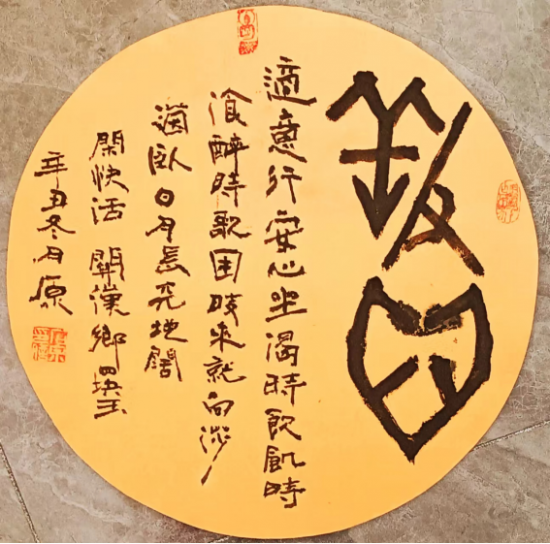 適意行安心坐渴時飲飢時
飡醉時歌困時來就向莎
茵臥日月長天地闊
閑快活 關漢卿 四塊玉
辛丑冬月原